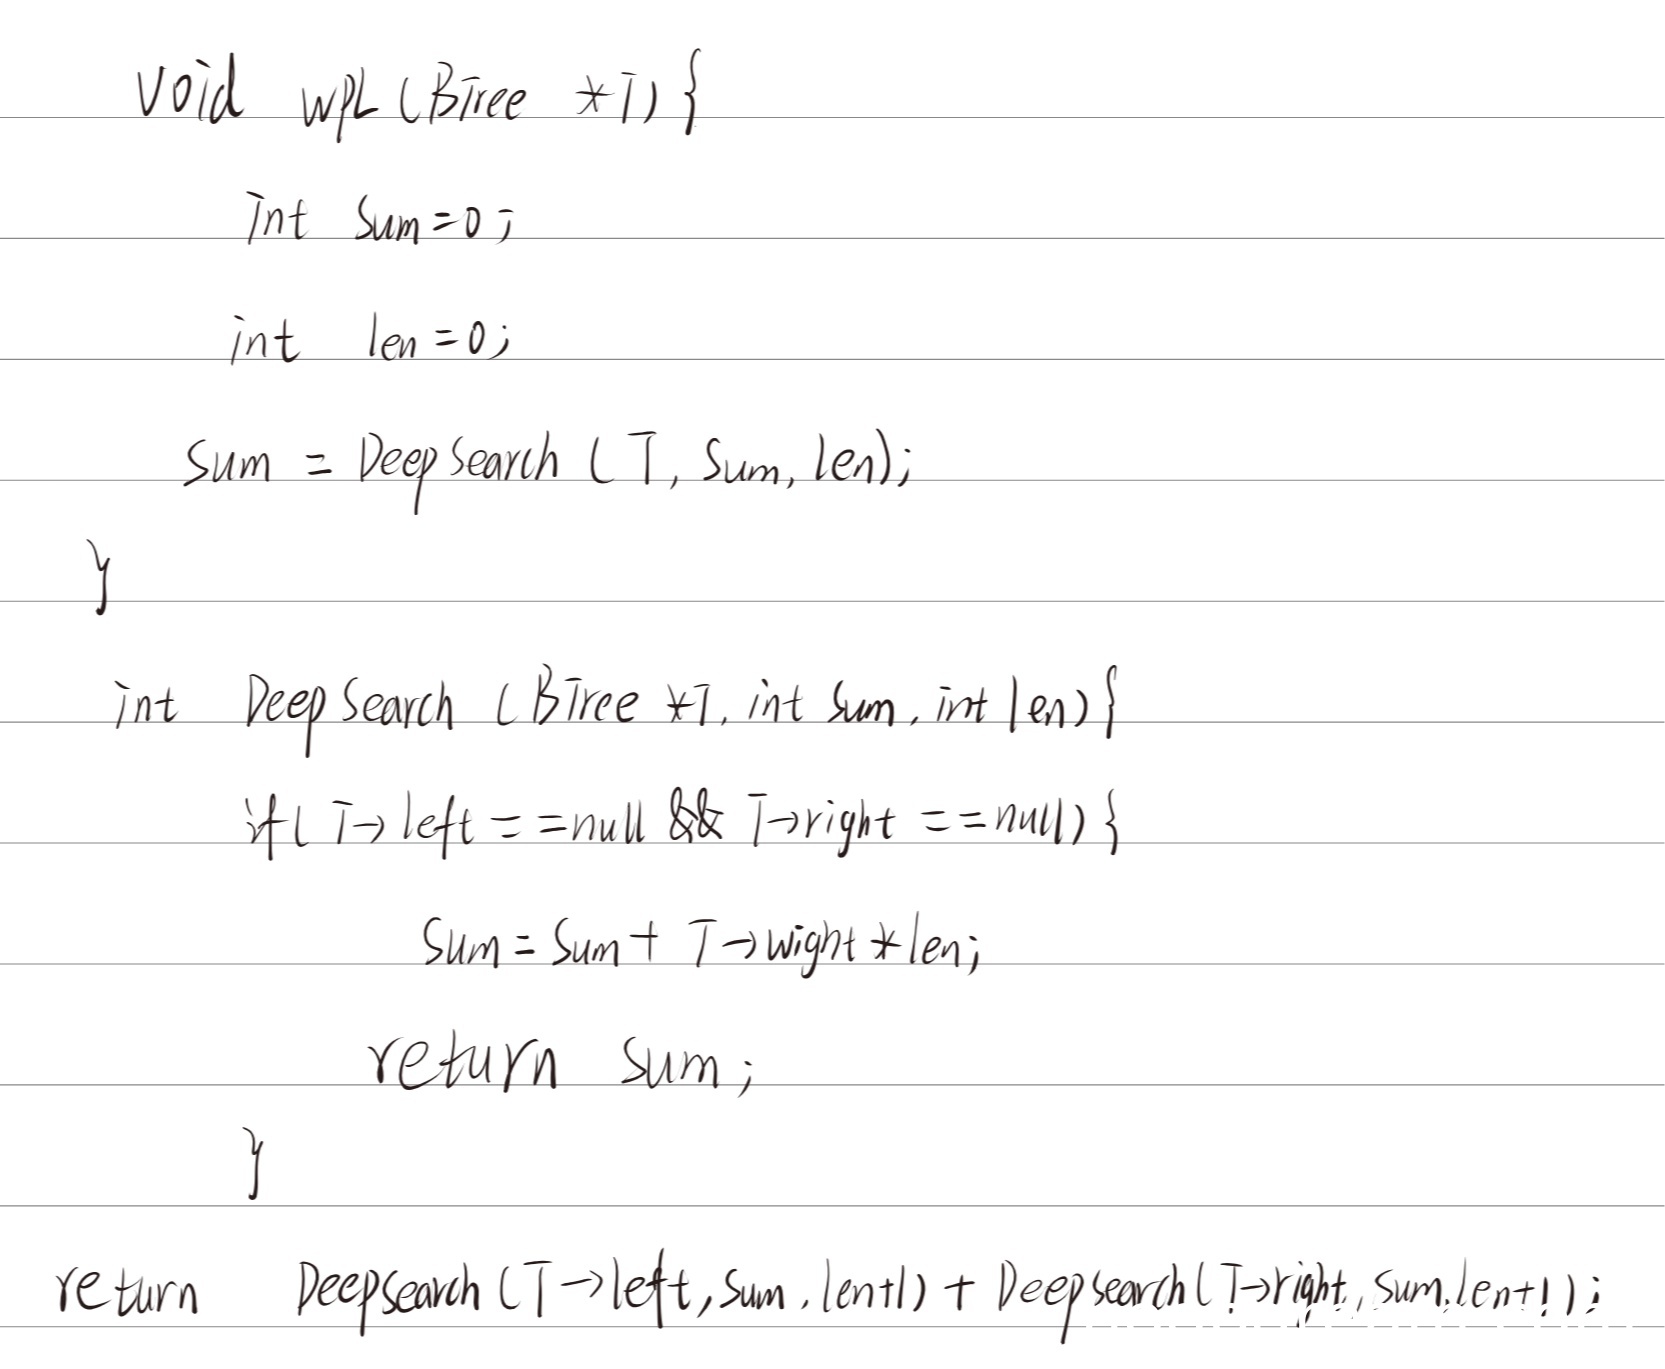 void WPL(BTree *T){
int sum=0;
int len=0;
sum = DeepSearch(T, sum, len);
}
int DeepSearch (BTree *T, int sum, int len){
if(T->left==null && T->right==null){
sum=sum+ T->wight*len;
return sum;
}
return Deepsearch(T->left,sum,len+1)+Deepsearch(T->right,sum,len+1);